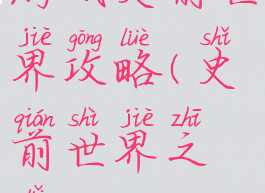 jiè gōng lüè shǐ
界攻略(史
qián shì jiè zhī
前世界之